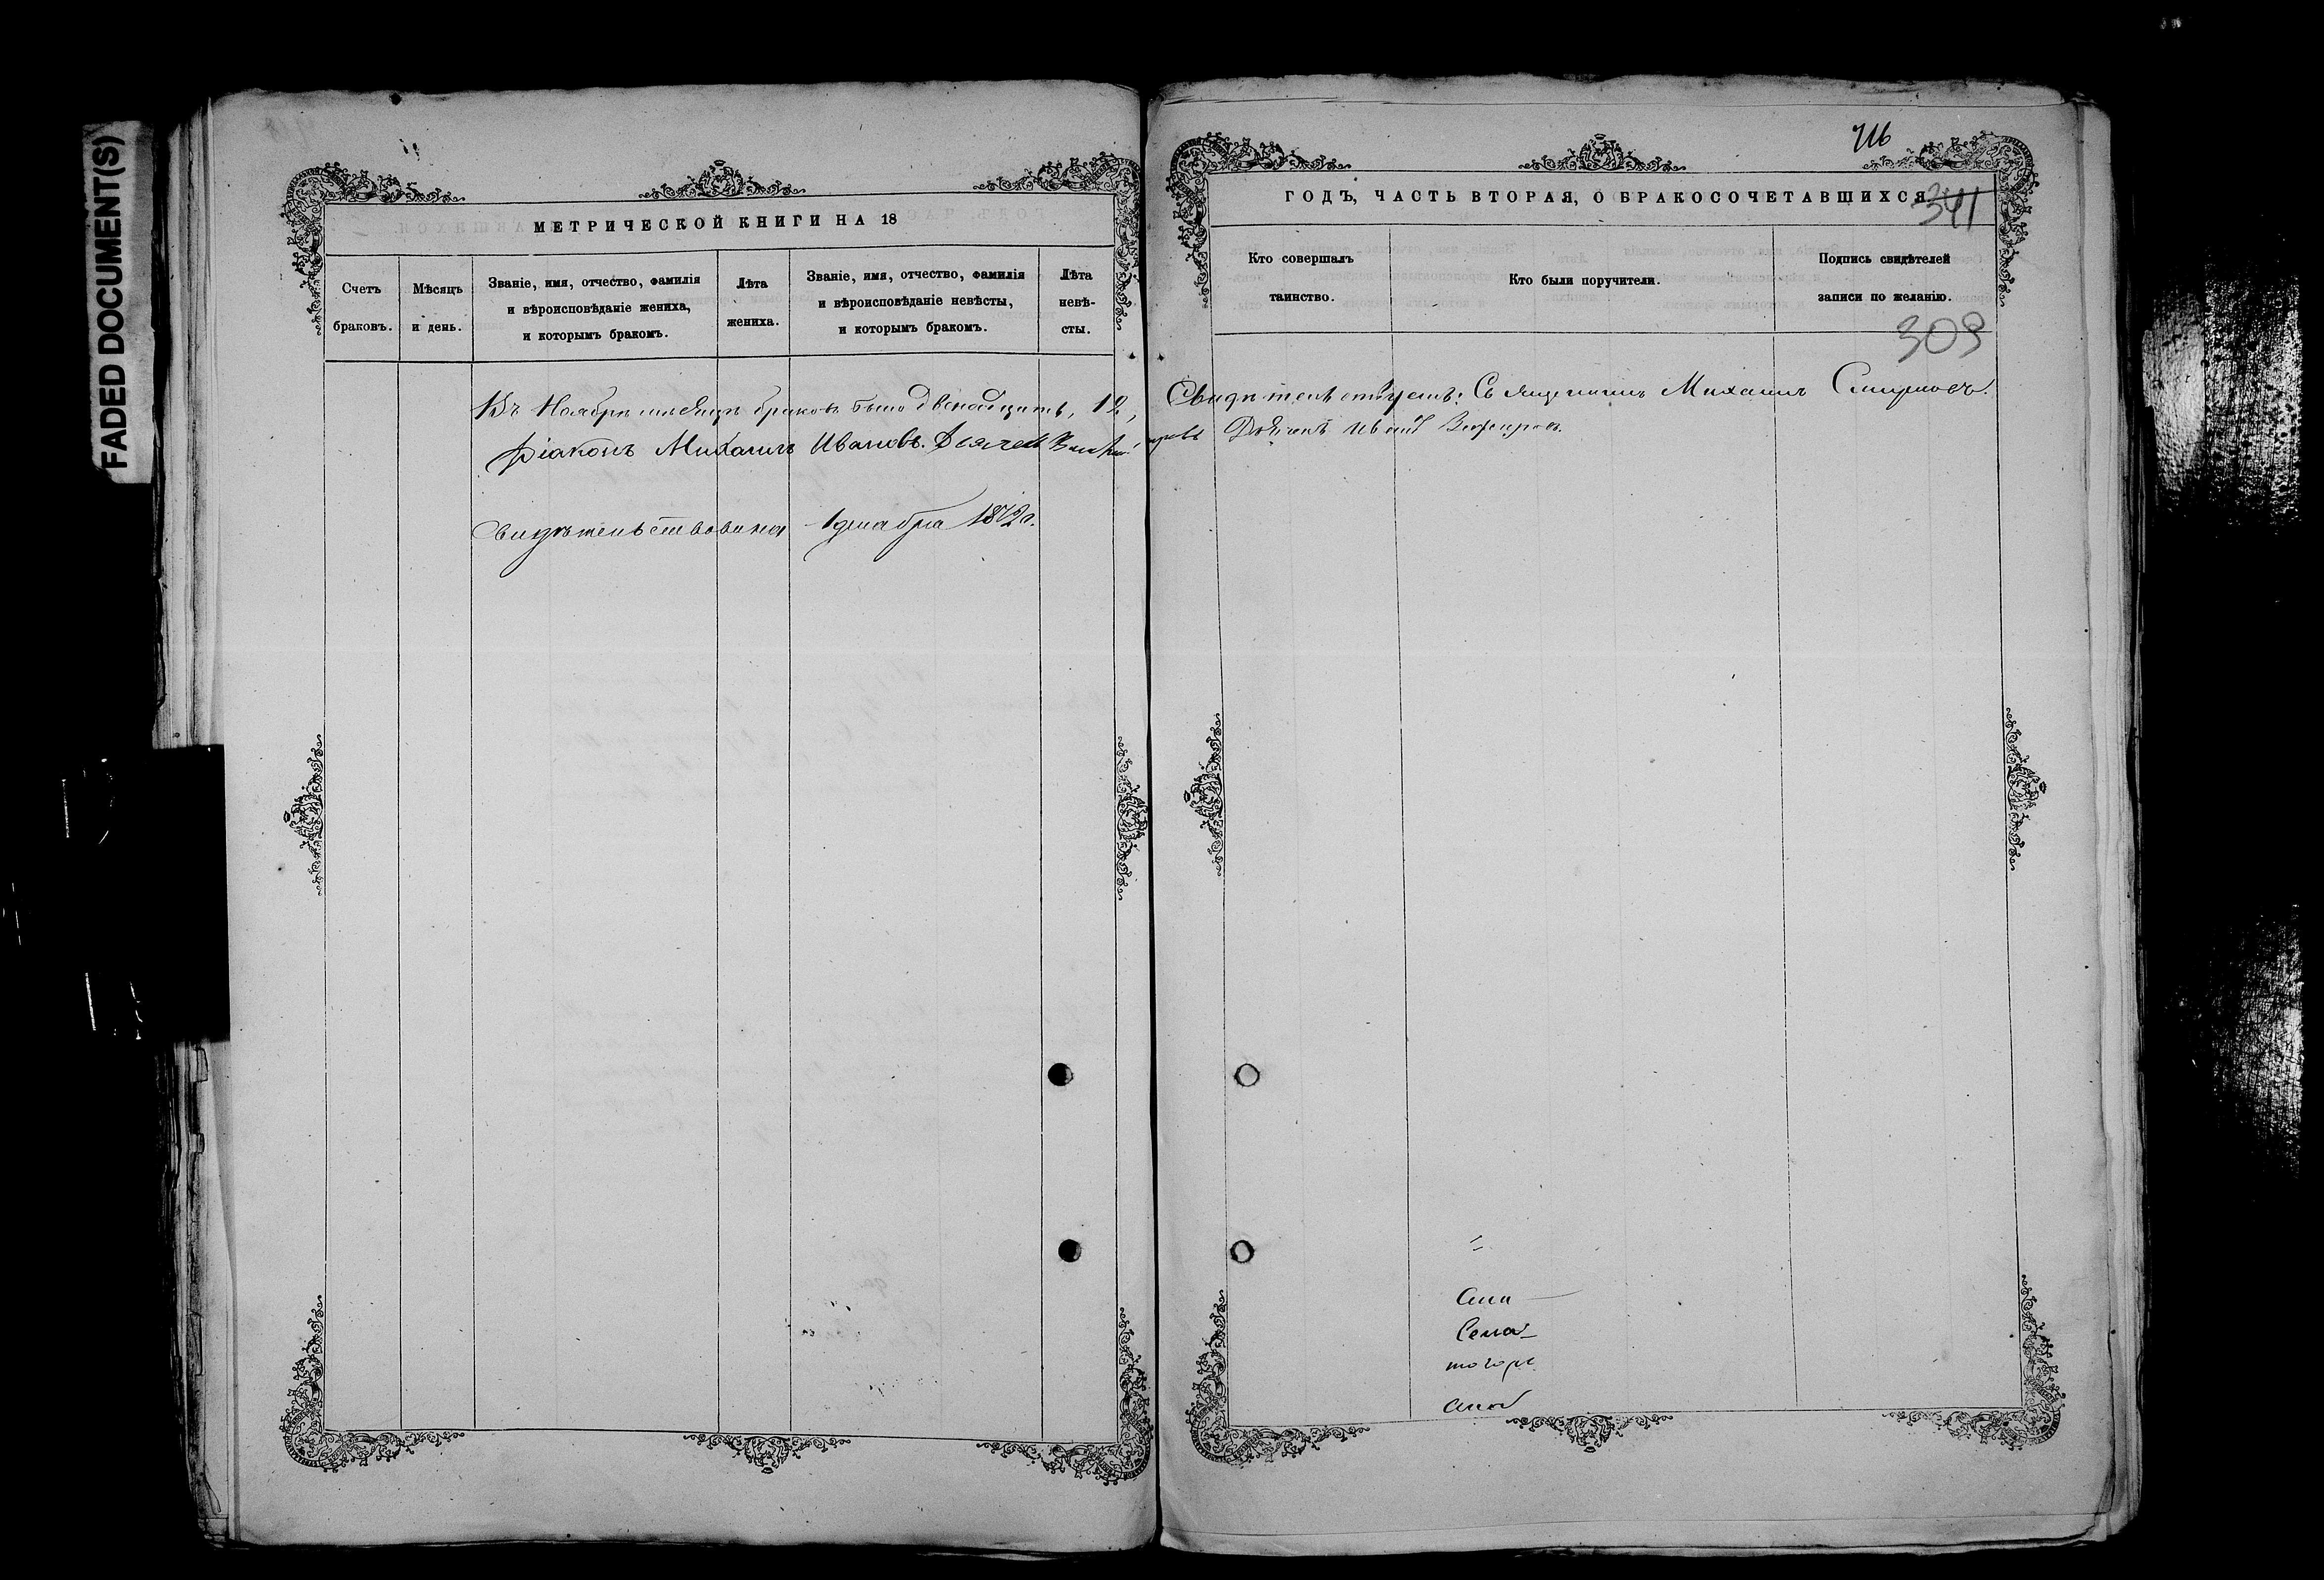 FADED DOCUMENT(S)
МЕТРИЧЕСКОЙ КНИГИ НА 18
Счетъ браковъ.
Мѣсяцъ и день.
Званіе, имя, отчество, фамилія
и вѣроисповѣданіе жениха,
и которымъ бракомъ.
Лѣта жениха.
Званіе, имя, отчество, фамилія
и вѣроисповѣданіе невѣсты,
и которымъ бракомъ.
Лѣта невѣ-
сты.
Въ Ноябрѣ мѣсяцѣ браковъ было двенадцать, 12,
Діаконъ Михаилъ Ивановъ. Дьячекъ
Свидѣтельствована 1 декабря 1872 г.
716
ГОДЪ, ЧАСТЬ ВТОРАЯ, О БРАКОСОЧЕТАВШИХСЯ
341
Кто совершалъ
таинство.
Кто были поручители.
Подпись свидѣтелей
записи по желанію.
309
Свидѣтельствуемъ: Священникъ Михаилъ Смирновъ.
Дьячекъ Иванъ